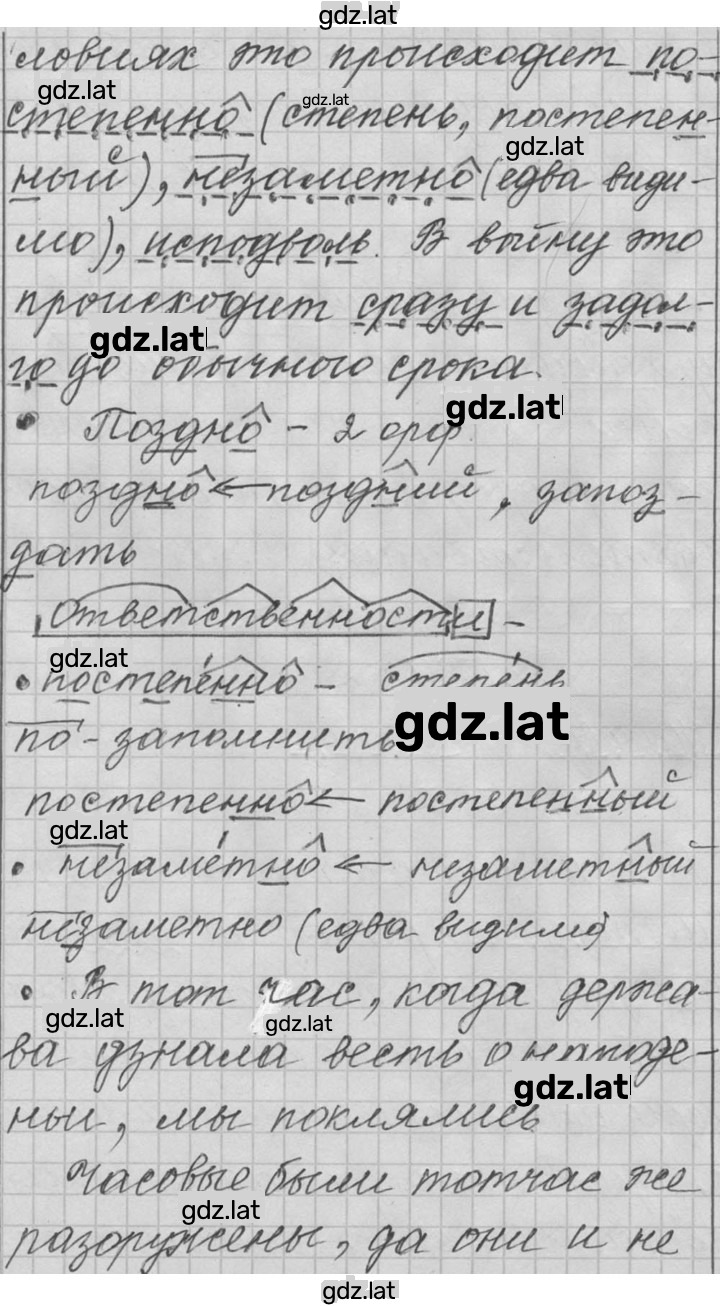 gdz.lat
ловиях это происходит по-
gdz.lat
gdz.lat
степенно (степень, постепен-
gdz.lat
ный), незаметно (едва види-
мо), исподволь. В войну это
происходит сразу и задол-
gdz.lat
го до обычного срока.
gdz.lat
• Поздно – 2 орф.
поздно ← поздний, запоз-
дать
Ответственности –
gdz.lat
• постепенно – степень
gdz.lat
по - запомнить
постепенно ← постепенный
gdz.lat
• незаметно ← незаметный
незаметно (едва видимо)
• В тот час, когда держа-
gdz.lat
gdz.lat
ва узнала весть о нападе-
gdz.lat
ньи, мы поклялись
Часовые были тотчас же
gdz.lat
разоружены, да они и не
gdz.lat